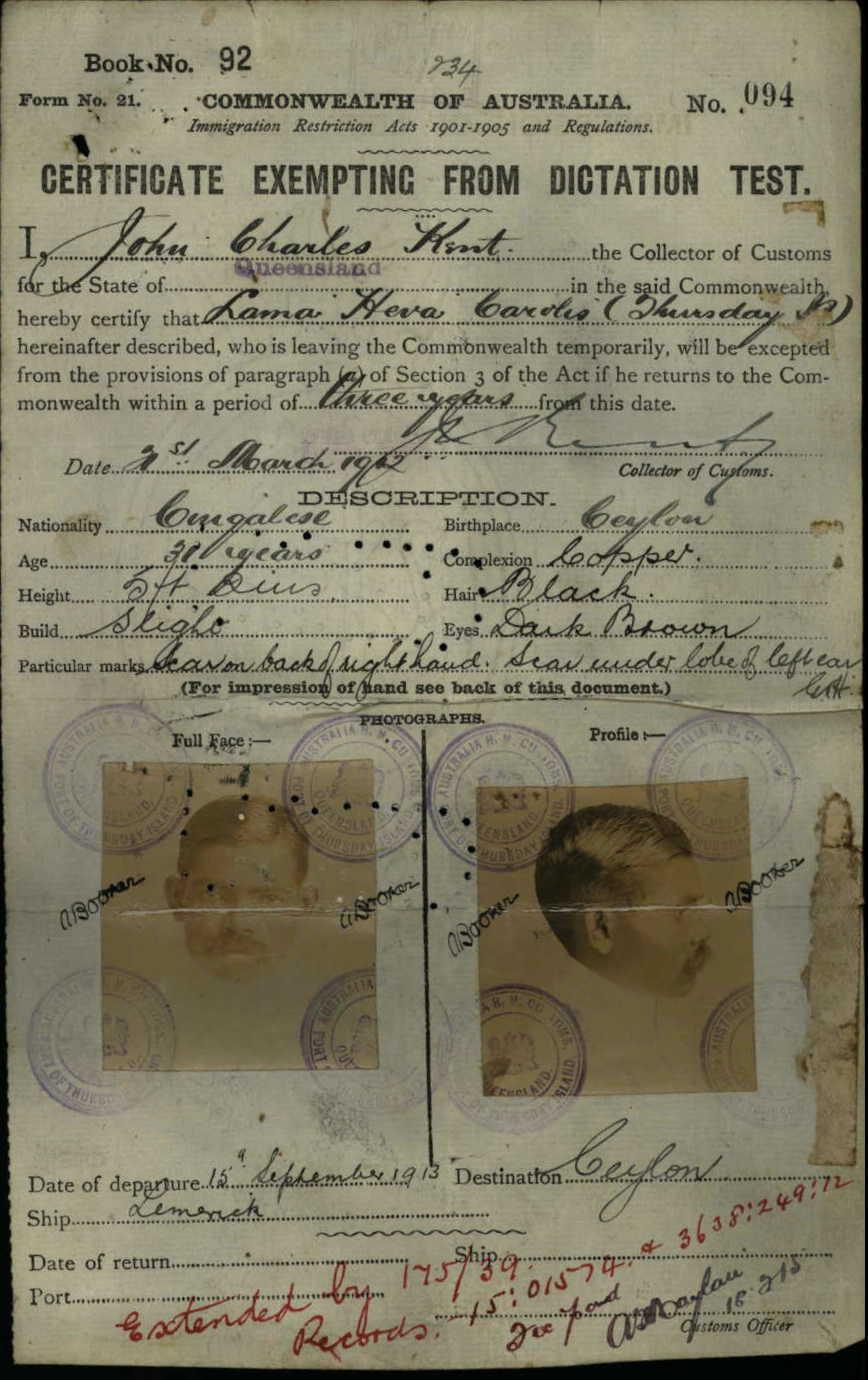 Book No. 92
234
Form No. 21. COMMONWEALTH OF AUSTRALIA. No. 094
Immigration Restriction Acts 1901-1905 and Regulations.
CERTIFICATE EXEMPTING FROM DICTATION TEST.
I, John Charles Kent. the Collector of Customs
for the State of Queensland in the said Commonwealth,
hereby certify that Lama Heva Carolis (Thursday Is)
hereinafter described, who is leaving the Commonwealth temporarily, will be excepted
from the provisions of paragraph (a) of Section 3 of the Act if he returns to the Com-
monwealth within a period of three years from this date.
Kent
Date 1912 March Collector of Customs.
DESCRIPTION.
Nationality Cingalese Birthplace Ceylon
Age years Complexion Copper.
Height 5ft ins Hair Black.
Build Slight Eyes Dark Brown
Particular marks Scar on back of right hand. Scar under lobe of left ear
(For impression of hand see back of this document.)
PHOTOGRAPHS.
Full Face :— Profile :—
AUSTRALIA H. M. CUSTOMS
PORT OF THURSDAY ISLAND
QUEENSLAND.
Date of departure 15 September 1913 Destination Ceylon
Ship Limerick
Date of return Ship
Port
Extended by 175/39. 15:01574. & 3638:249:72
Records.
Customs Officer